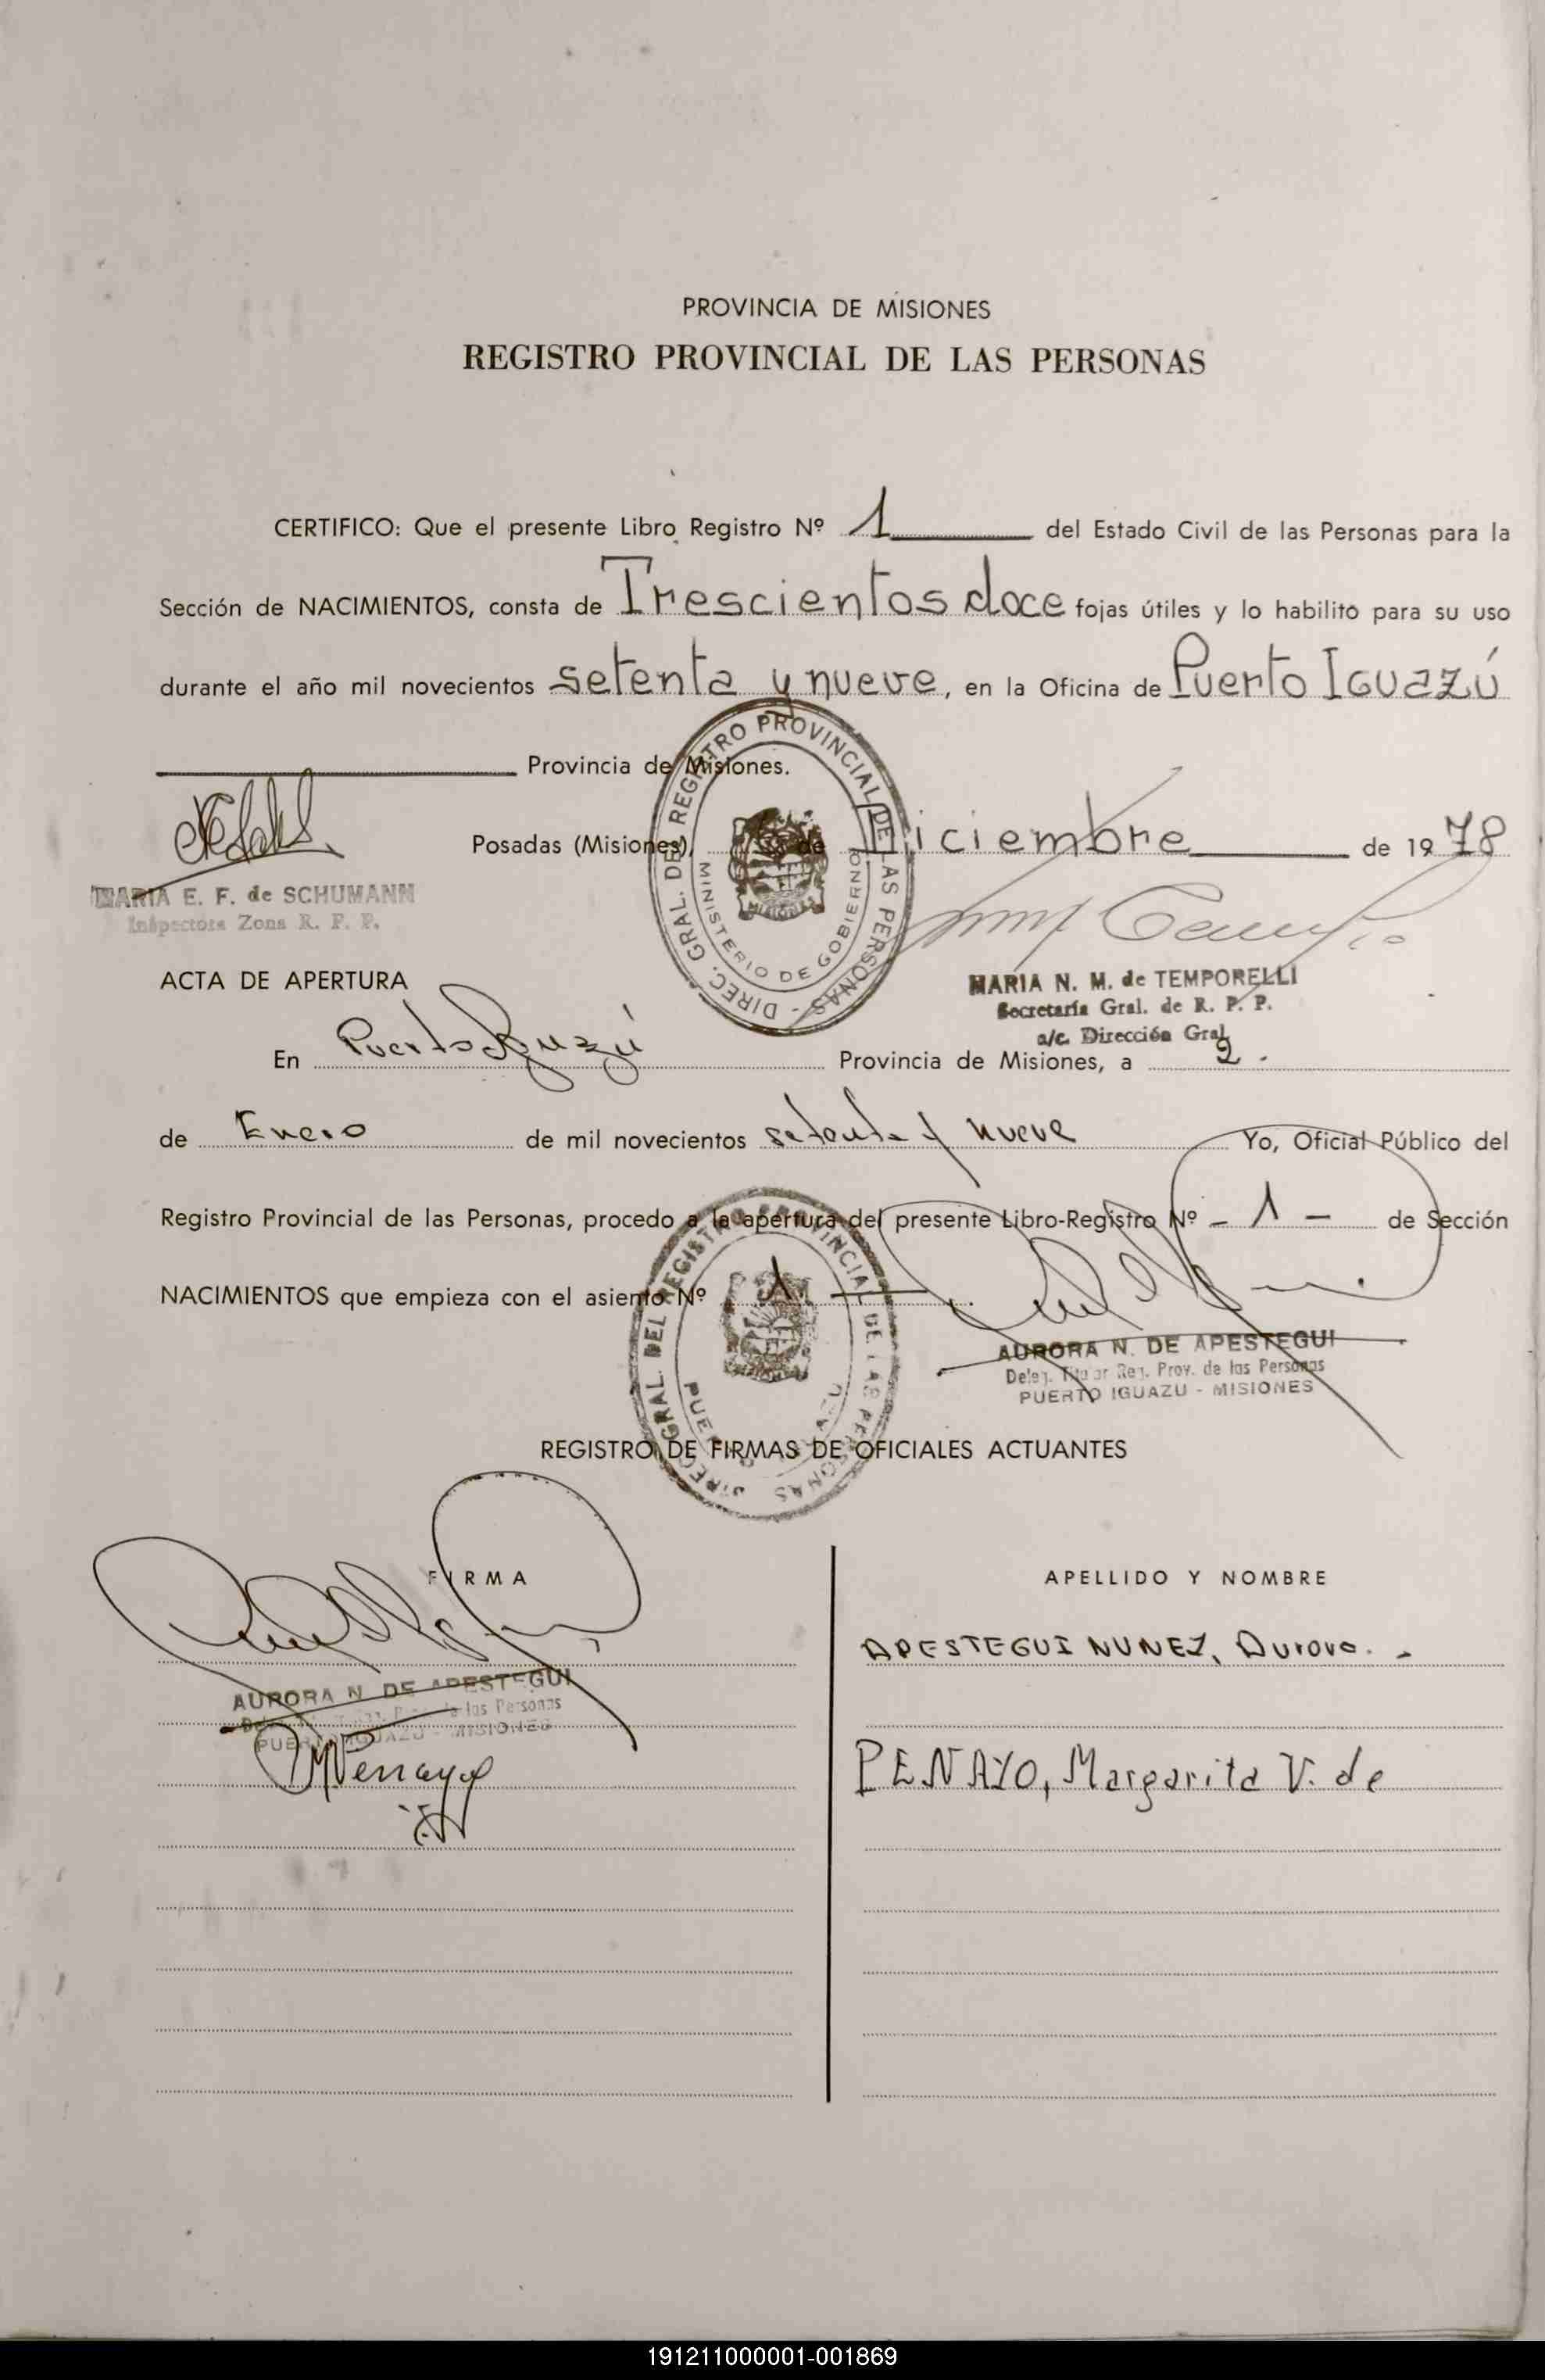 PROVINCIA DE MISIONES
REGISTRO PROVINCIAL DE LAS PERSONAS
CERTIFICO: Que el presente Libro Registro Nº 1 del Estado Civil de las Personas para la
Sección de NACIMIENTOS, consta de Trescientos doce fojas útiles y lo habilito para su uso
durante el año mil novecientos setenta y nueve, en la Oficina de Puerto Iguazú
Provincia de Misiones.
Posadas (Misiones), de Diciembre de 1978
DIREC. GRAL. DEL REGISTRO PROVINCIAL DE LAS PERSONAS
MINISTERIO DE GOBIERNO
MISIONES
MARIA E. F. de SCHUMANN
Inspectora Zona R. P. P.
MARIA N. M. de TEMPORELLI
Secretaria Gral. de R. P. P.
a/c. Dirección Gral.
ACTA DE APERTURA
En Puerto Iguazú Provincia de Misiones, a 2.
de Enero de mil novecientos setenta y nueve Yo, Oficial Público del
Registro Provincial de las Personas, procedo a la apertura del presente Libro-Registro Nº - 1 - de Sección
NACIMIENTOS que empieza con el asiento Nº 1
DIREC. GRAL. DEL REGISTRO PROVINCIAL DE LAS PERSONAS
PUERTO IGUAZU
AURORA N. DE APESTEGUI
Deleg. Titular Reg. Prov. de las Personas
PUERTO IGUAZU - MISIONES
REGISTRO DE FIRMAS DE OFICIALES ACTUANTES
FIRMA APELLIDO Y NOMBRE
APESTEGUI NUNEZ, Aurora. -
AURORA N. DE APESTEGUI
de las Personas
PUERTO IGUAZU - MISIONES
MPenayo PENAYO, Margarita V. de
191211000001-001869